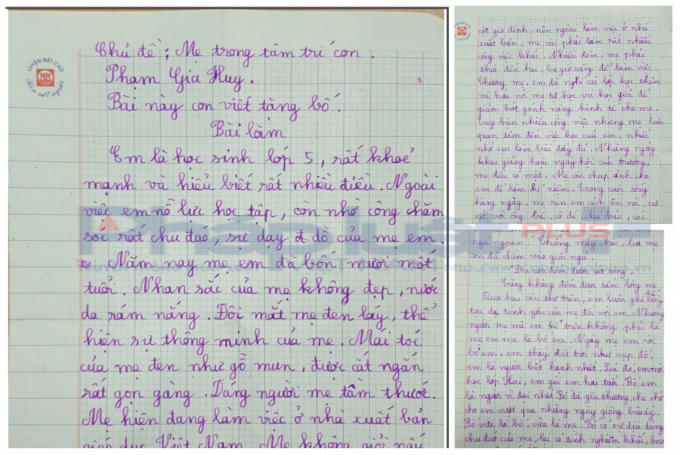 Chủ đề: Mẹ trong tâm trí con.
Phạm Gia Huy.
Bài này con viết tặng bố.
Bài làm
Em là học sinh lớp 5, rất khoẻ
mạnh và hiểu biết rất nhiều điều. Ngoài
việc em nỗ lực học tập, còn nhờ công chăm
sóc rất chu đáo, sự dạy dỗ của mẹ em.
Năm nay mẹ em đã bốn mươi một
tuổi. Nhan sắc của mẹ không đẹp, nước
da rám nắng. Đôi mắt mẹ đen láy, thể
hiện sự thông minh của mẹ. Mái tóc
của mẹ đen như gỗ mun, được cắt ngắn
rất gọn gàng. Dáng người mẹ tầm thước.
Mẹ hiện đang làm việc ở nhà xuất bản
giáo dục Việt Nam. Mẹ không giỏi nấu
cắt gia đình, nên ngoài làm việc ở nhà
xuất bản, mẹ còn phải làm rất nhiều
công việc khác. Nhiều đêm, mẹ phải
thức đến hai, ba giờ sáng để làm việc.
Thương mẹ, em đã nghỉ cái lớp học thêm
và hứa với mẹ tự học và học giỏi để
giảm bớt gánh nặng kinh tế cho mẹ.
Tuy bận nhiều công việc nhưng mẹ luôn
quan tâm đến việc học của em, nhắc
nhở em làm bài đầy đủ. Những ngày
khai giảng hoặc ngày hội của trường,
mẹ đều có mặt. Mẹ còn chụp ảnh cho
em để làm kỉ niệm. Trong cuộc sống
hàng ngày, mẹ răn em cách ăn nói, cư
xử với ông bà, cô dì, chú bác, cái
ngủ ngoan. Chẳng mấy chốc, ba mẹ
em đã chìm vào giấc ngủ.
Dù con đếm được cát sông,
Cũng không đếm được tấm lòng mẹ.
Qua hai câu thơ trên, em luôn ghi lòng
tạc dạ tình yêu của mẹ đối với em. Nhưng
người mẹ mà em kể trên không phải là
mẹ em mà là bố em. Ngày mẹ em rời
bố em, em thấy đất trời như sụp đổ,
em là người bất hạnh nhất. Lúc đó, em mới
học lớp Hai, em gái em hai tuổi. Bố em
là người vĩ đại nhất. Bố đã yêu thương, che chở
cho em vượt qua những ngày giông bão ấy.
Bố vừa là bố, vừa là mẹ. Bố có sự dịu dàng
chu đáo của mẹ, lại có tính nghiêm khắc, bao
PLUS